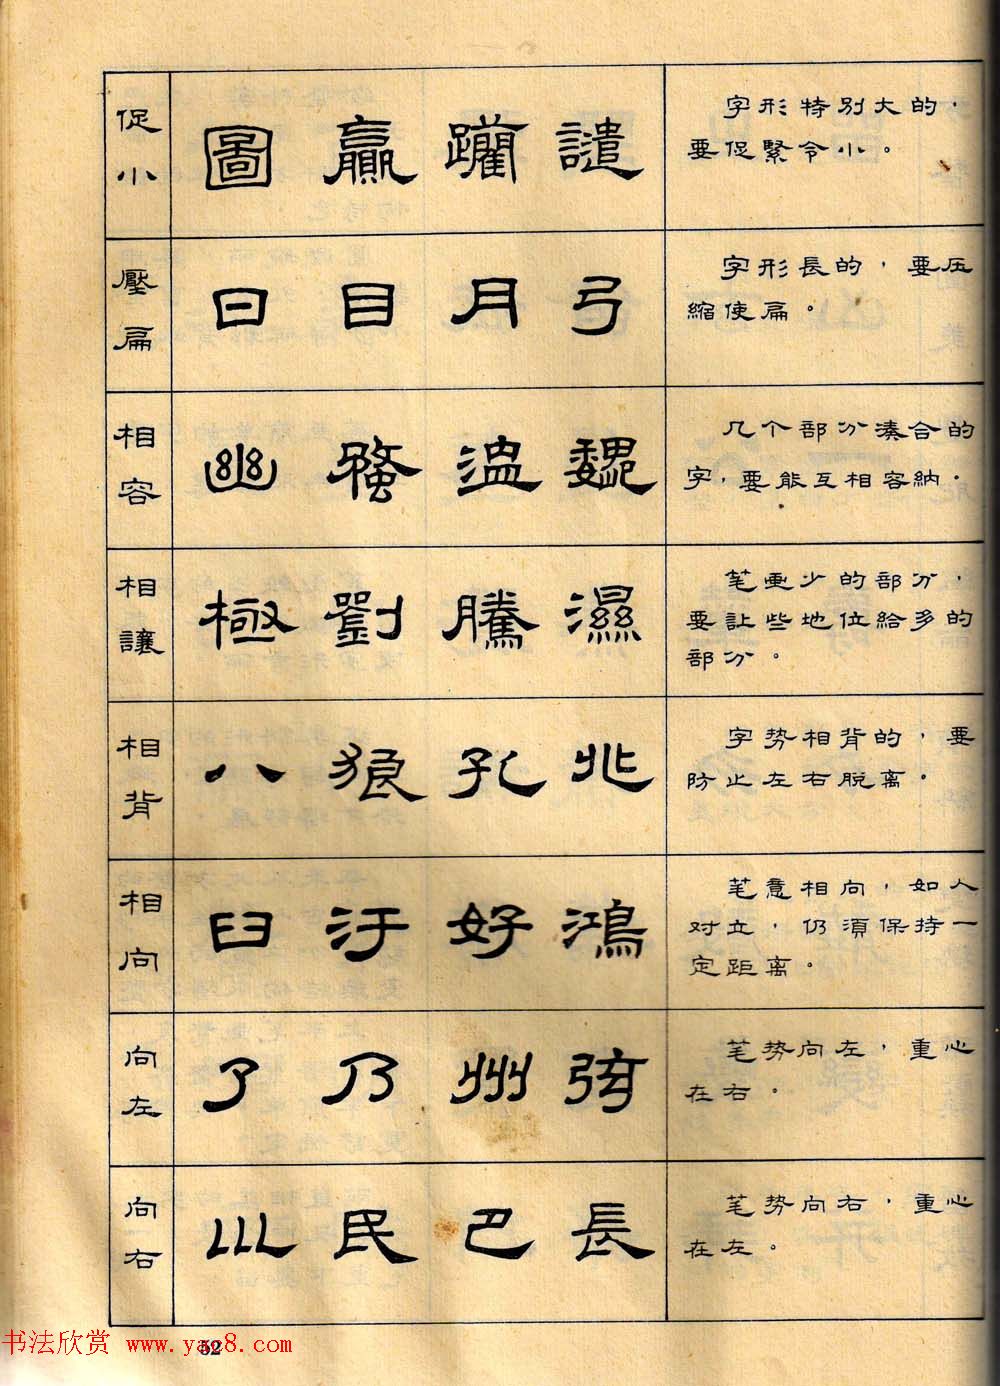 促
小
圖 贏 譴
字形特別大的，
要促緊令小。
壓
扁
曰 目 月 弓
字形長的，要压
縮使扁。
相
容
幽 溫 魏
几个部分凑合的
字，要能互相容納。
相
讓
極 劉 騰 濕
笔画少的部分，
要让些地位給多的
部分。
相
背
八 狼 孔 北
字势相背的，要
防止左右脱离。
相
向
臼 汙 好 鴻
笔意相向，如人
对立，仍須保持一
定距离。
向
左
了 乃 州 弦
笔势向左，重心
在右。
向
右
川 民 巴 長
笔势向右，重心
在左。
书法欣赏 www.yac8.com
52